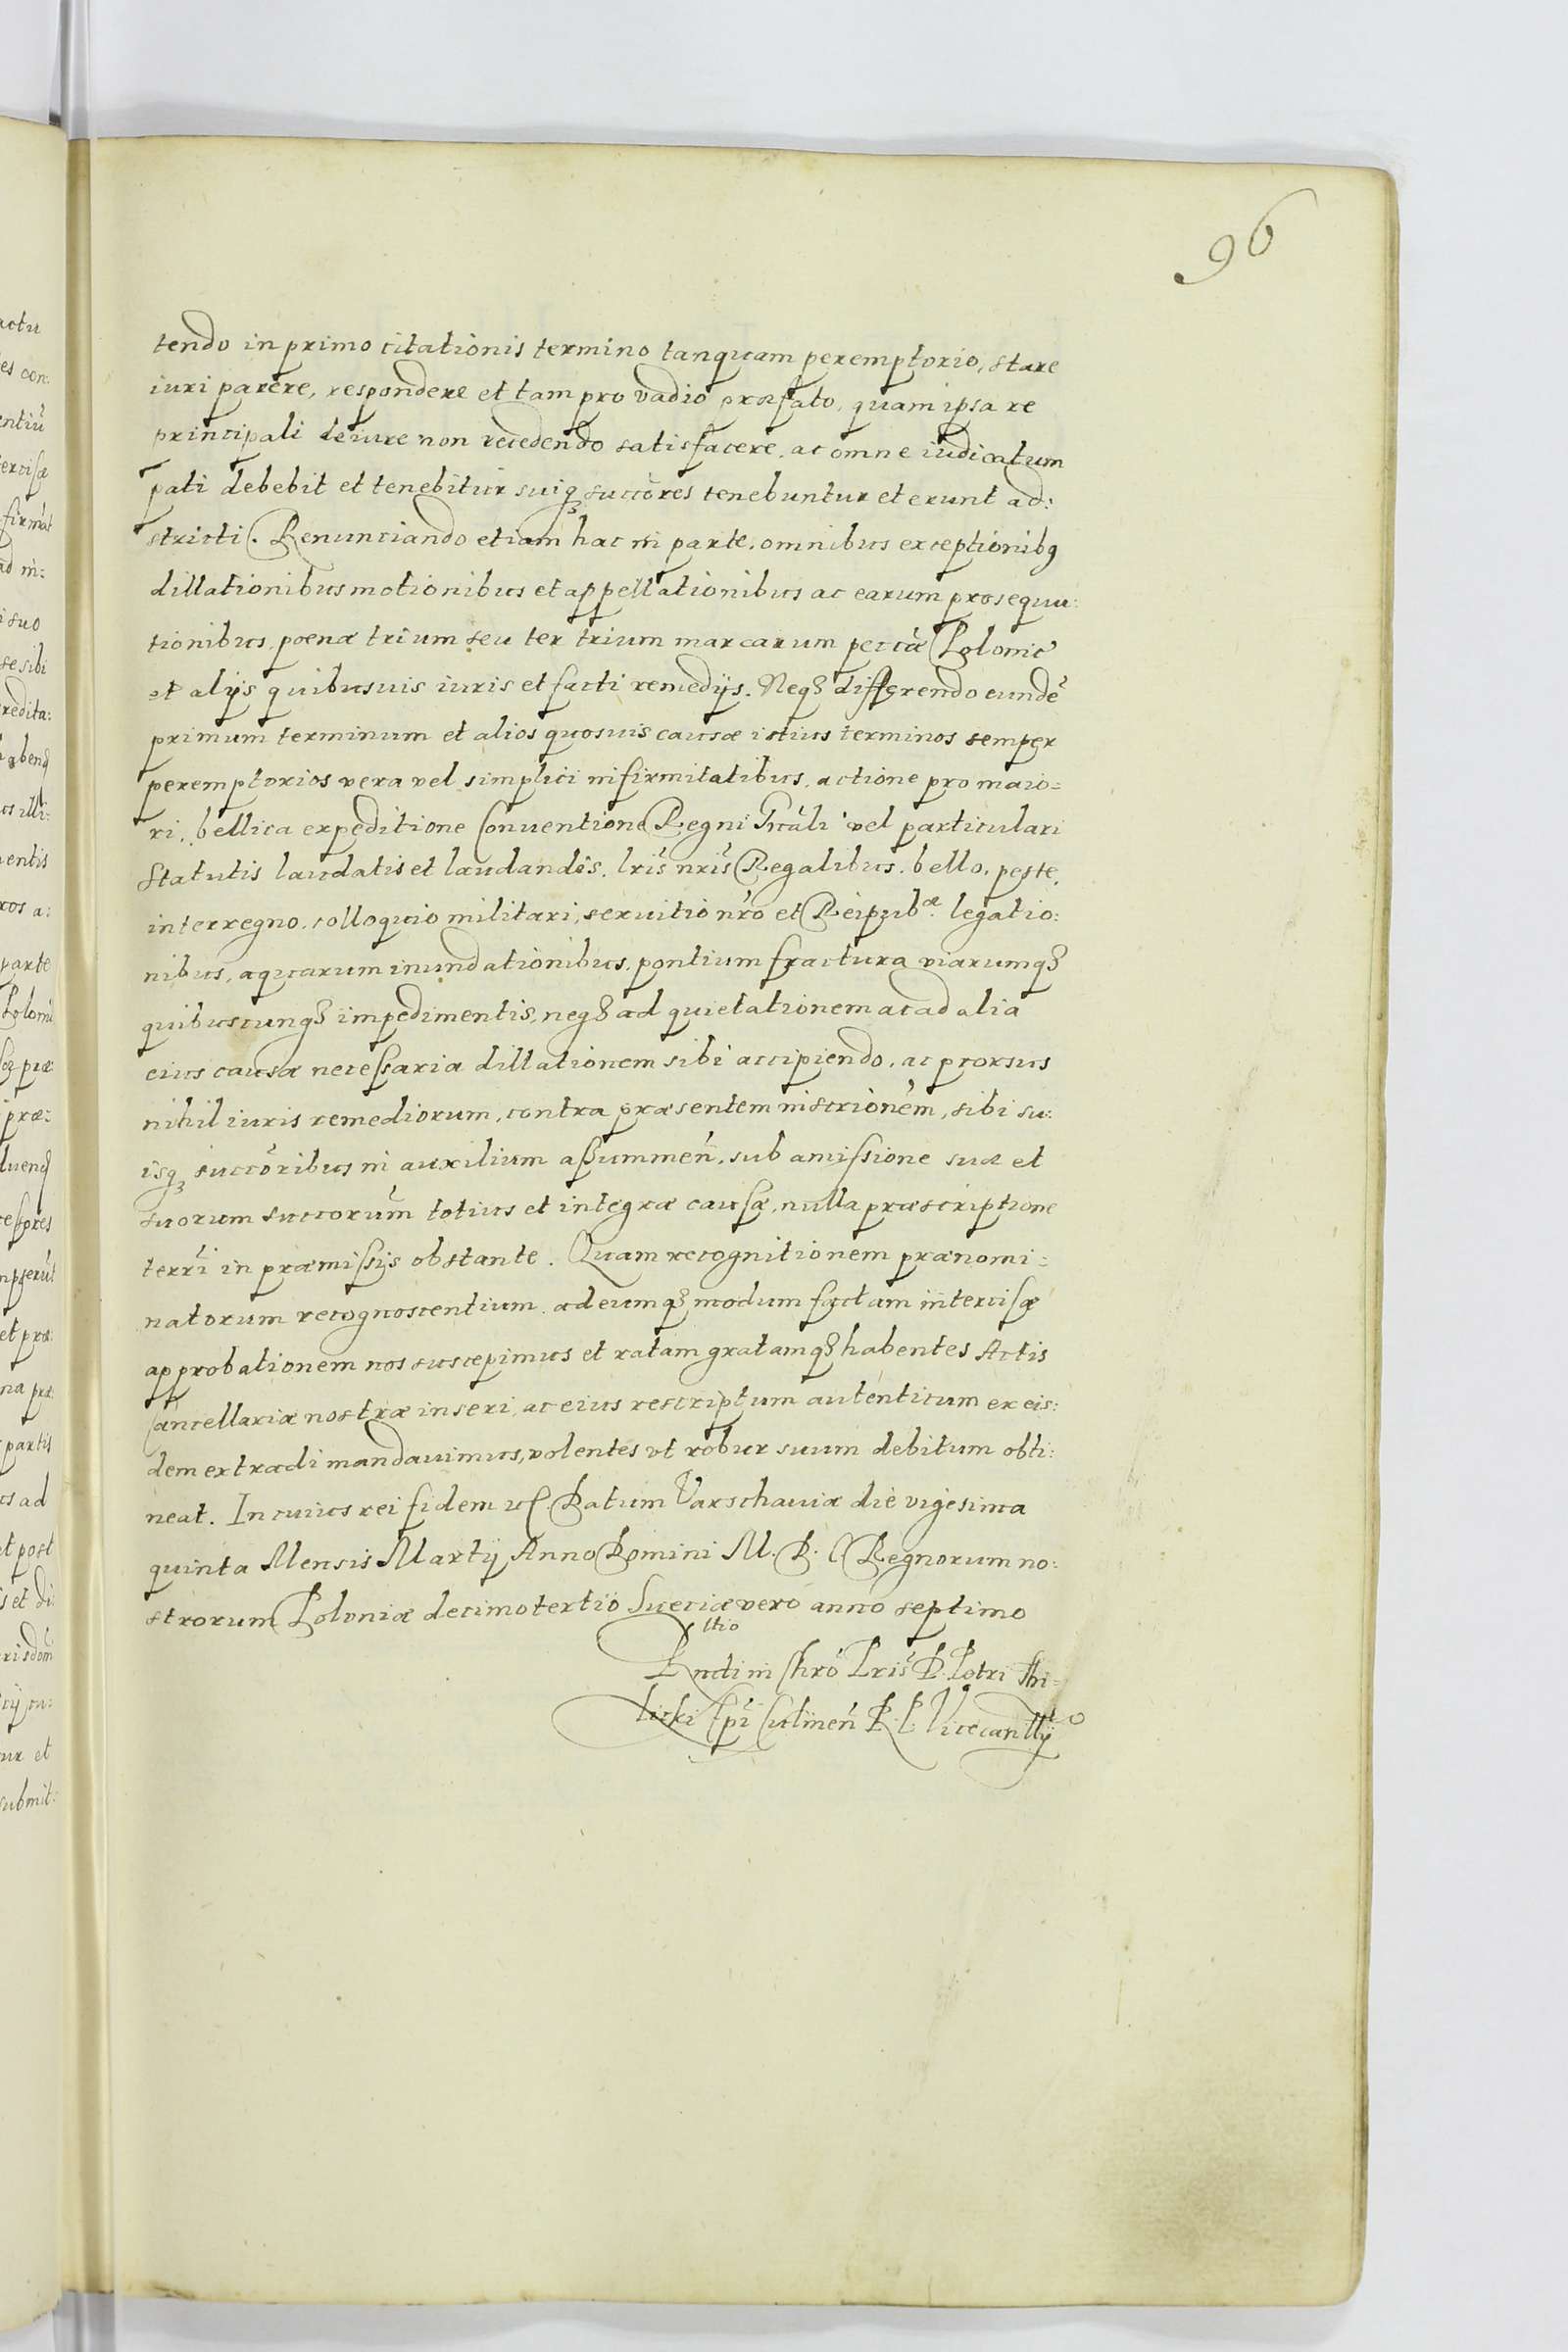 96
tendo in primo citationis termino tanquam peremptorio, stare
iuri parere, respondere et tam pro vadio præfato, quam ipsa re
principali de iure non recedendo satisfacere, ac omne iudicatum
pati debebit et tenebitur suiq; succores tenebuntur et erunt ad:
stricti. Renunciando etiam hac in parte, omnibus exceptionibq
dillationibus motionibus et appellationibus ac earum prosequu:
tionibus, poenæ trium seu ter trium marcarum peccæ Polonic
et alijs quibusuis iuris et facti remedijs. Neq; differendo eundē
primum terminum et alios quosuis causæ istius terminos semper
peremptorios vera vel simplici infirmitatibus, actione pro maio=
ri, bellica expeditione Conuentione Regni vel particulari
Statutis laudatis et laudandis, lris nris Regalibus, bello, peste,
interregno, colloquio militari, seruitio nro et Reipubæ. legatio:
nibus, aquarum inundationibus, pontium fractura viarumq;
quibuscunq; impedimentis, neq; ad quietationem ac ad alia
eius causæ necessaria dillationem sibi accipiendo, ac prorsus
nihil iuris remediorum, contra præsentem inscrionem, sibi su:
isq; succoribus in auxilium assummen, sub amissione suæ et
suorum succorum totius et integræ causæ, nulla præscriptione
terri in præmissis obstante. Quam recognitionem prænomi=
natorum recognoscentium, ad eumq; modum factam intercisæ
approbationem nos suscepimus et ratam gratamq; habentes Actis
Cancellariæ nostræ inseri, ac eius rescriptum autenticum ex eis:
dem extradi mandauimus, volentes vt robur suum debitum obti:
neat. In cuius rei fidem Datum Varschauiæ die vigesima
quinta Mensis Martij Anno Domini M. D. C Regnorum no:
strorum Poloniæ decimotertio Sueciæ vero anno septimo
Rndi in Chro Pris D. Petri Thi=
licki Epi Culmen R. P. Vicecanllij